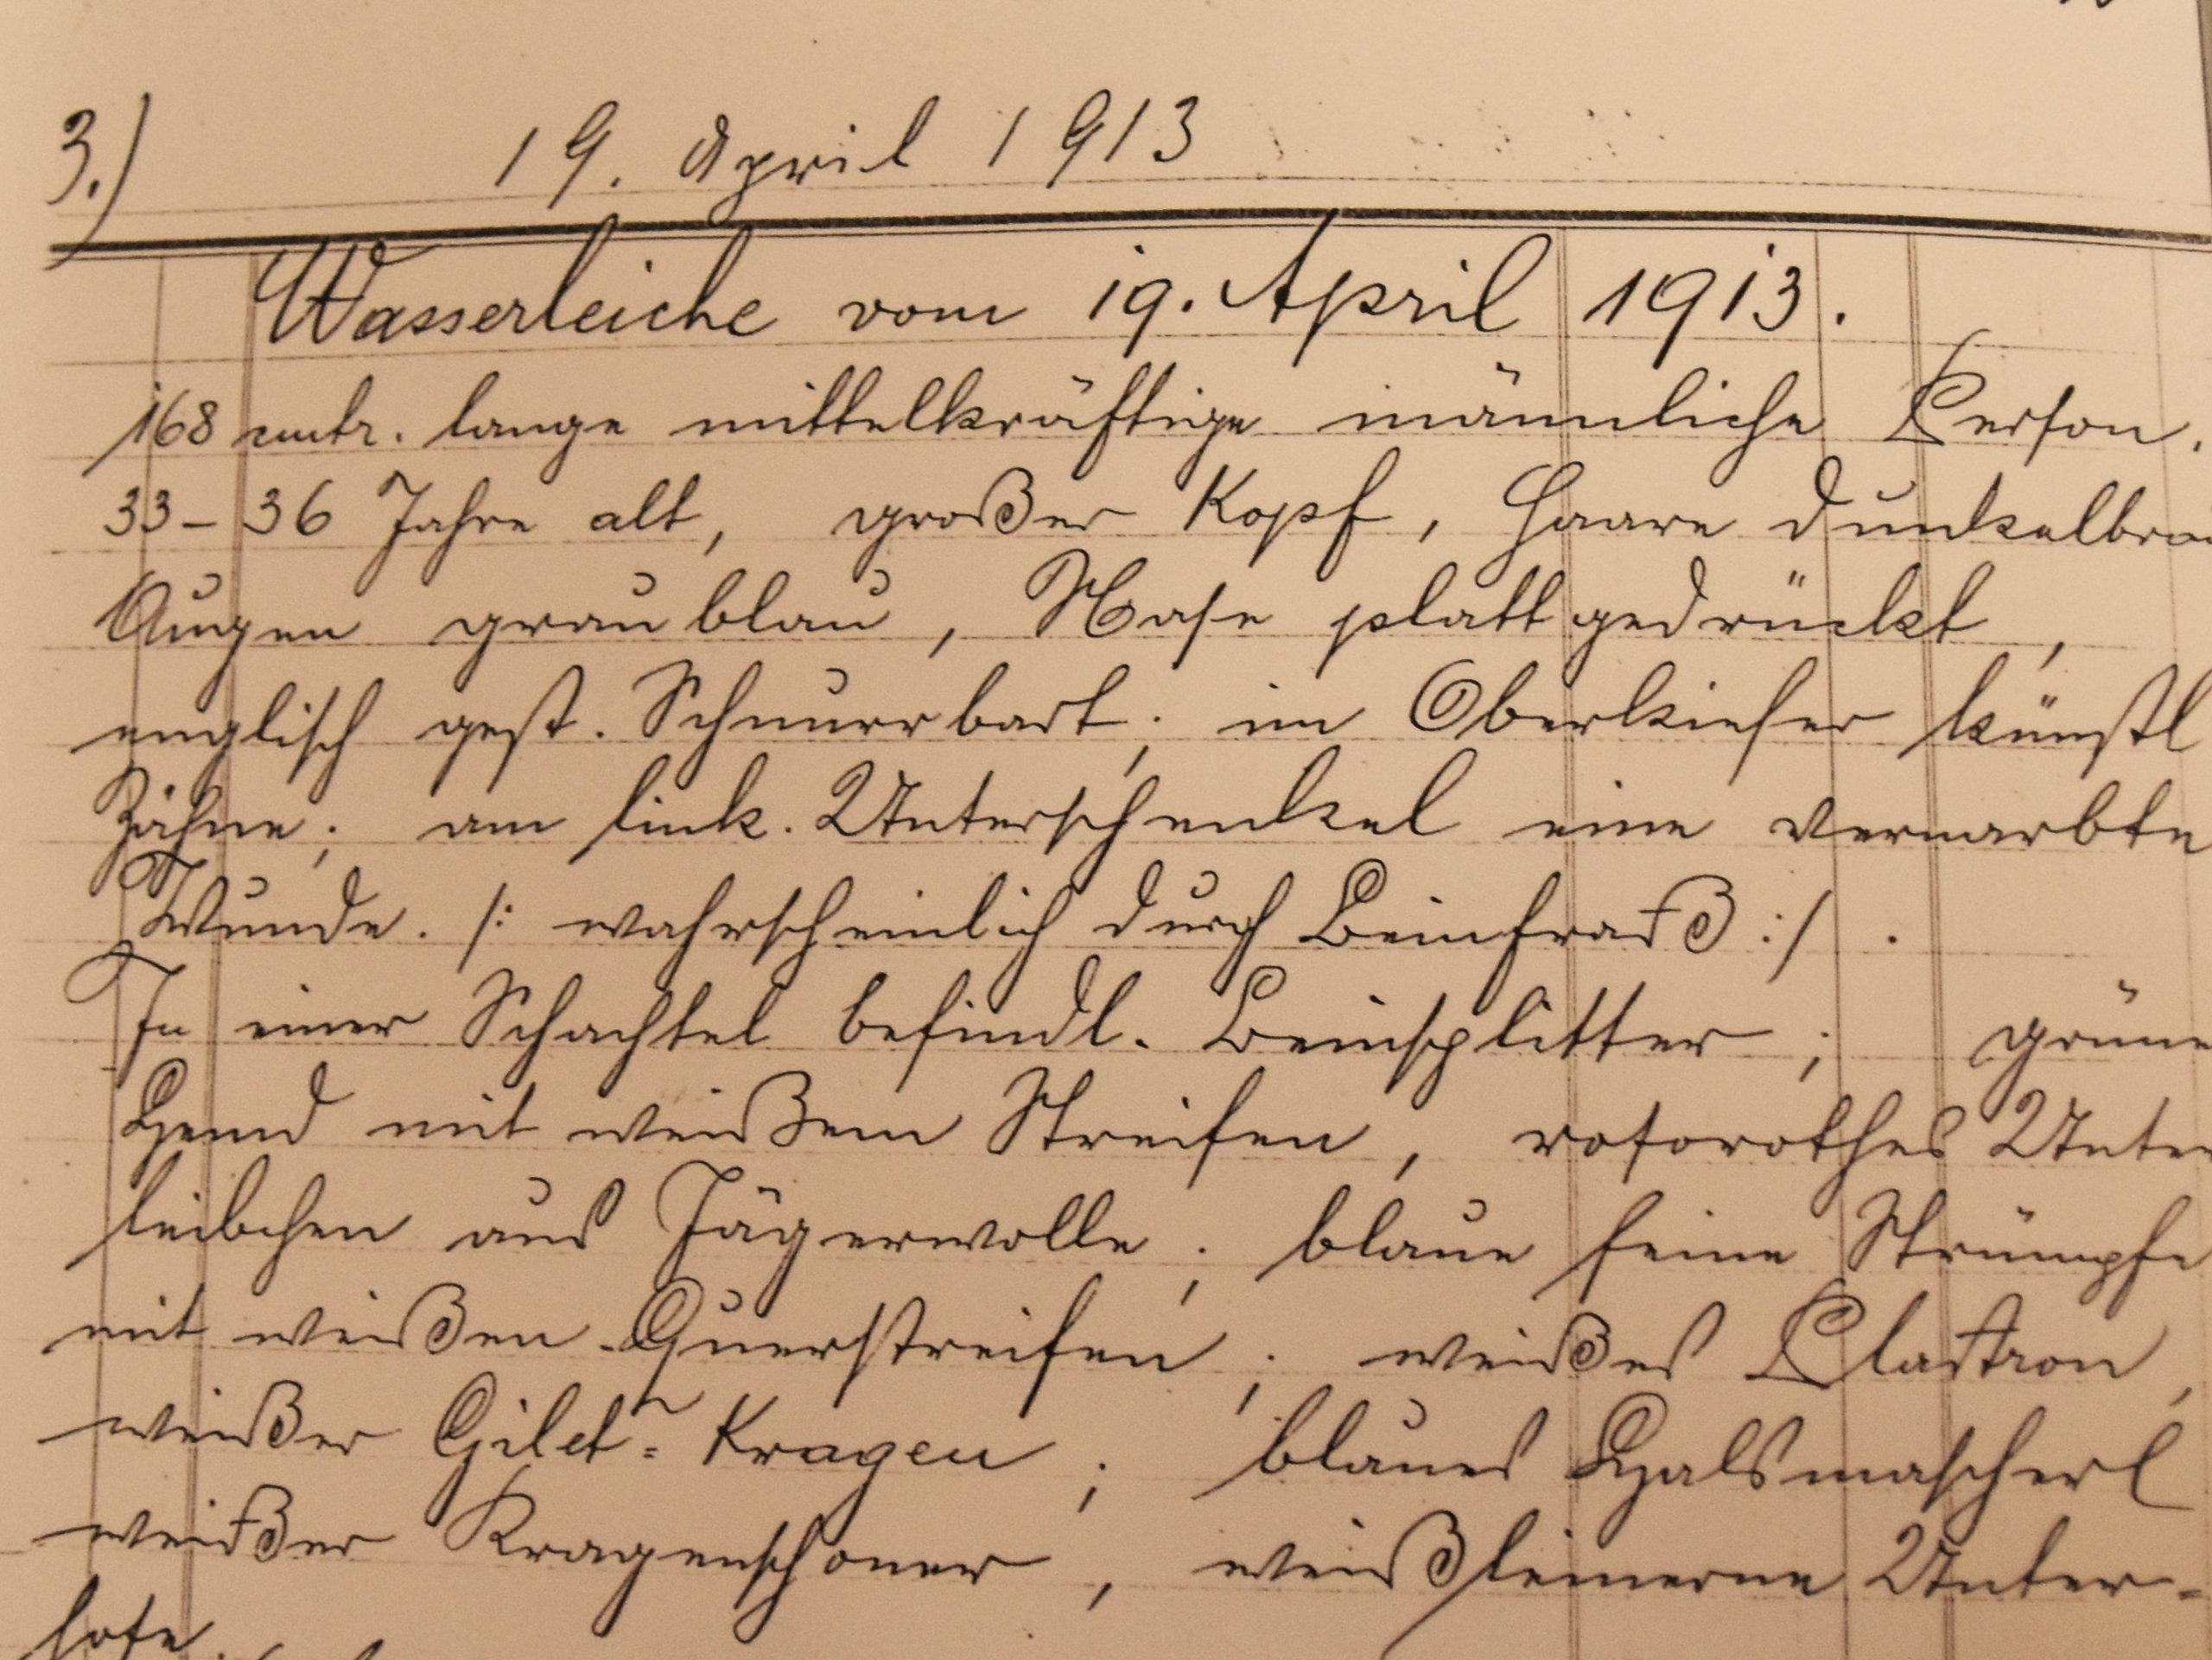 3.) 19. April 1913
Wasserleiche vom 19. April 1913.
168 cmtr. lange mittelkräftige männliche Person.
33 – 36 Jahre alt, großer Kopf, Haare dunkelbrau
Augen graublau, Nase plattgedrückt,
englisch gest. Schnurrbart; im Oberkiefer künstl
Zähne; am link. Unterschenkel eine vernarbte
Wunde. /: wahrscheinlich durch Beinfraß :/ .
In einer Schachtel befindl. Beinsplitter; grüne
Hemd mit weißem Streifen, rosorothes Unter
leibchen aus Jägerwolle; blaue feine Strümpfe
mit weißen Querstreifen; weißes Plastron,
weißer Gilet-Kragen; blaues Halsmascherl
weißer Kragenschoner, weißleinerne Unter-
hose